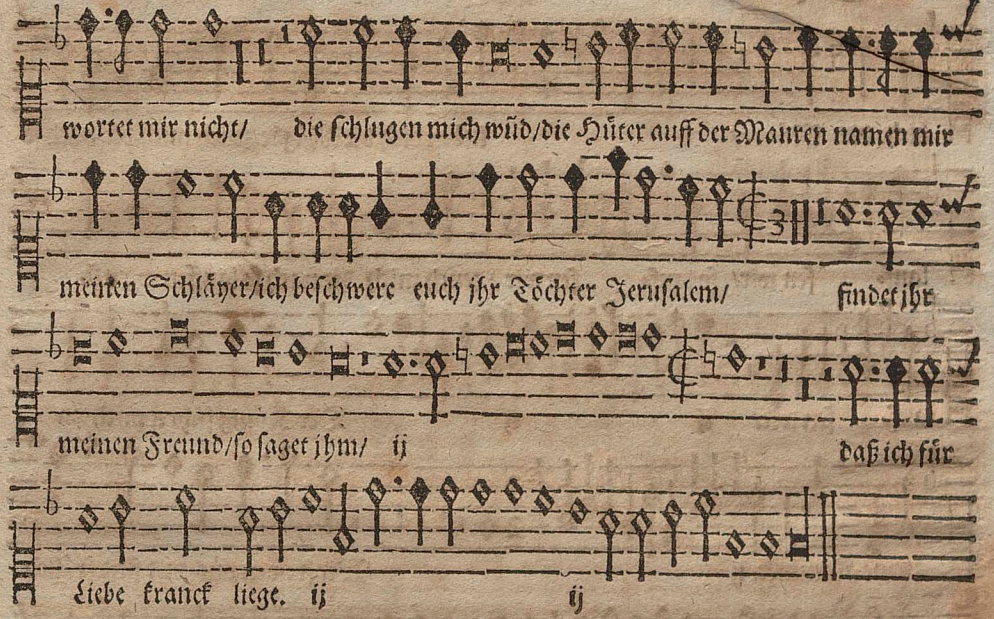 wortet mir nicht/ die schlugen mich wůd/die Hüter auff der Mauren namen mir
meinen Schläyer/ich beschwere euch jhr Töchter Jerusalem/ findet jhr
meinen Freund/so saget jhm/ ij daß ich für
Liebe kranck liege. ij ij